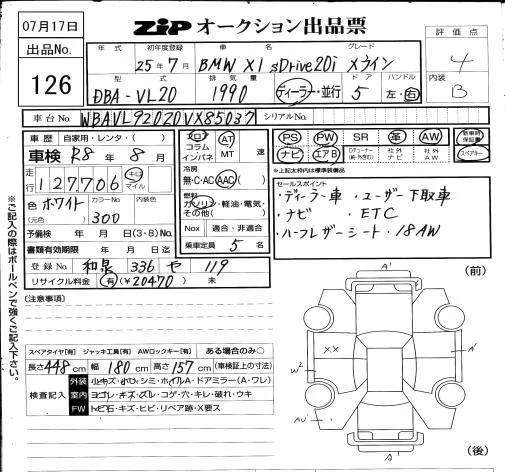 07月17日
ZiP オークション出品票
出品No.
126
年式 初年度登録 車名 グレード
25年7月 BMW X1 sDrive20i Xライン
型式 排気量 ドア ハンドル
DBA-VL20 1990 ディーラー・並行 5 左・右
評価点
4
内装
B
車台No. WBAVL92020VX85037 シリアルNo.
車歴 自家用・レンタ・( )
車検 R8年8月
走行 127,706 キロ マイル
色 ホワイト カラーNo. 300 内装色
(元色)
予備検 年 月 日(3・8)No.
書類有効期限 年 月 日
登録No. 和泉 336 せ 119
リサイクル料金 有(¥20470) 未
フロア コラム インパネ AT MT 速
冷房
無・C・AC AAC
燃料
ガソリン・軽油・電気・その他( )
Nox 適合・非適合
乗車定員 5名
PS PW SR 革 AW 新車時保証書
ナビ エアB Dチョーナー(純・外含む) 社外ナビ 社外AW スペアキー
*上記太枠内は標準装備品
セールスポイント
・ディーラー車 ・ユーザー下取車
・ナビ ・ETC
・ハーフレザーシート・18AW
ご記入の際はボールペンで強くご記入下さい。
(注意事項)
スペアタイヤ[有] ジャッキ工具[有] AWロックキー[有] ある場合のみ○
長さ448cm 幅180cm 高さ157cm (車検証上の寸法)
検査記入
外装 小キズ・小凹・シミ・ホイルA・ドアミラー(A・ワレ)
室内 ヨゴレ・キズ・スレ・コゲ・穴・キレ・破れ・ウキ
FW トビ石・キズ・ヒビ・リペア跡・X要ス
(前)
A'
XX
W2
A'
AU'
A'
(後)